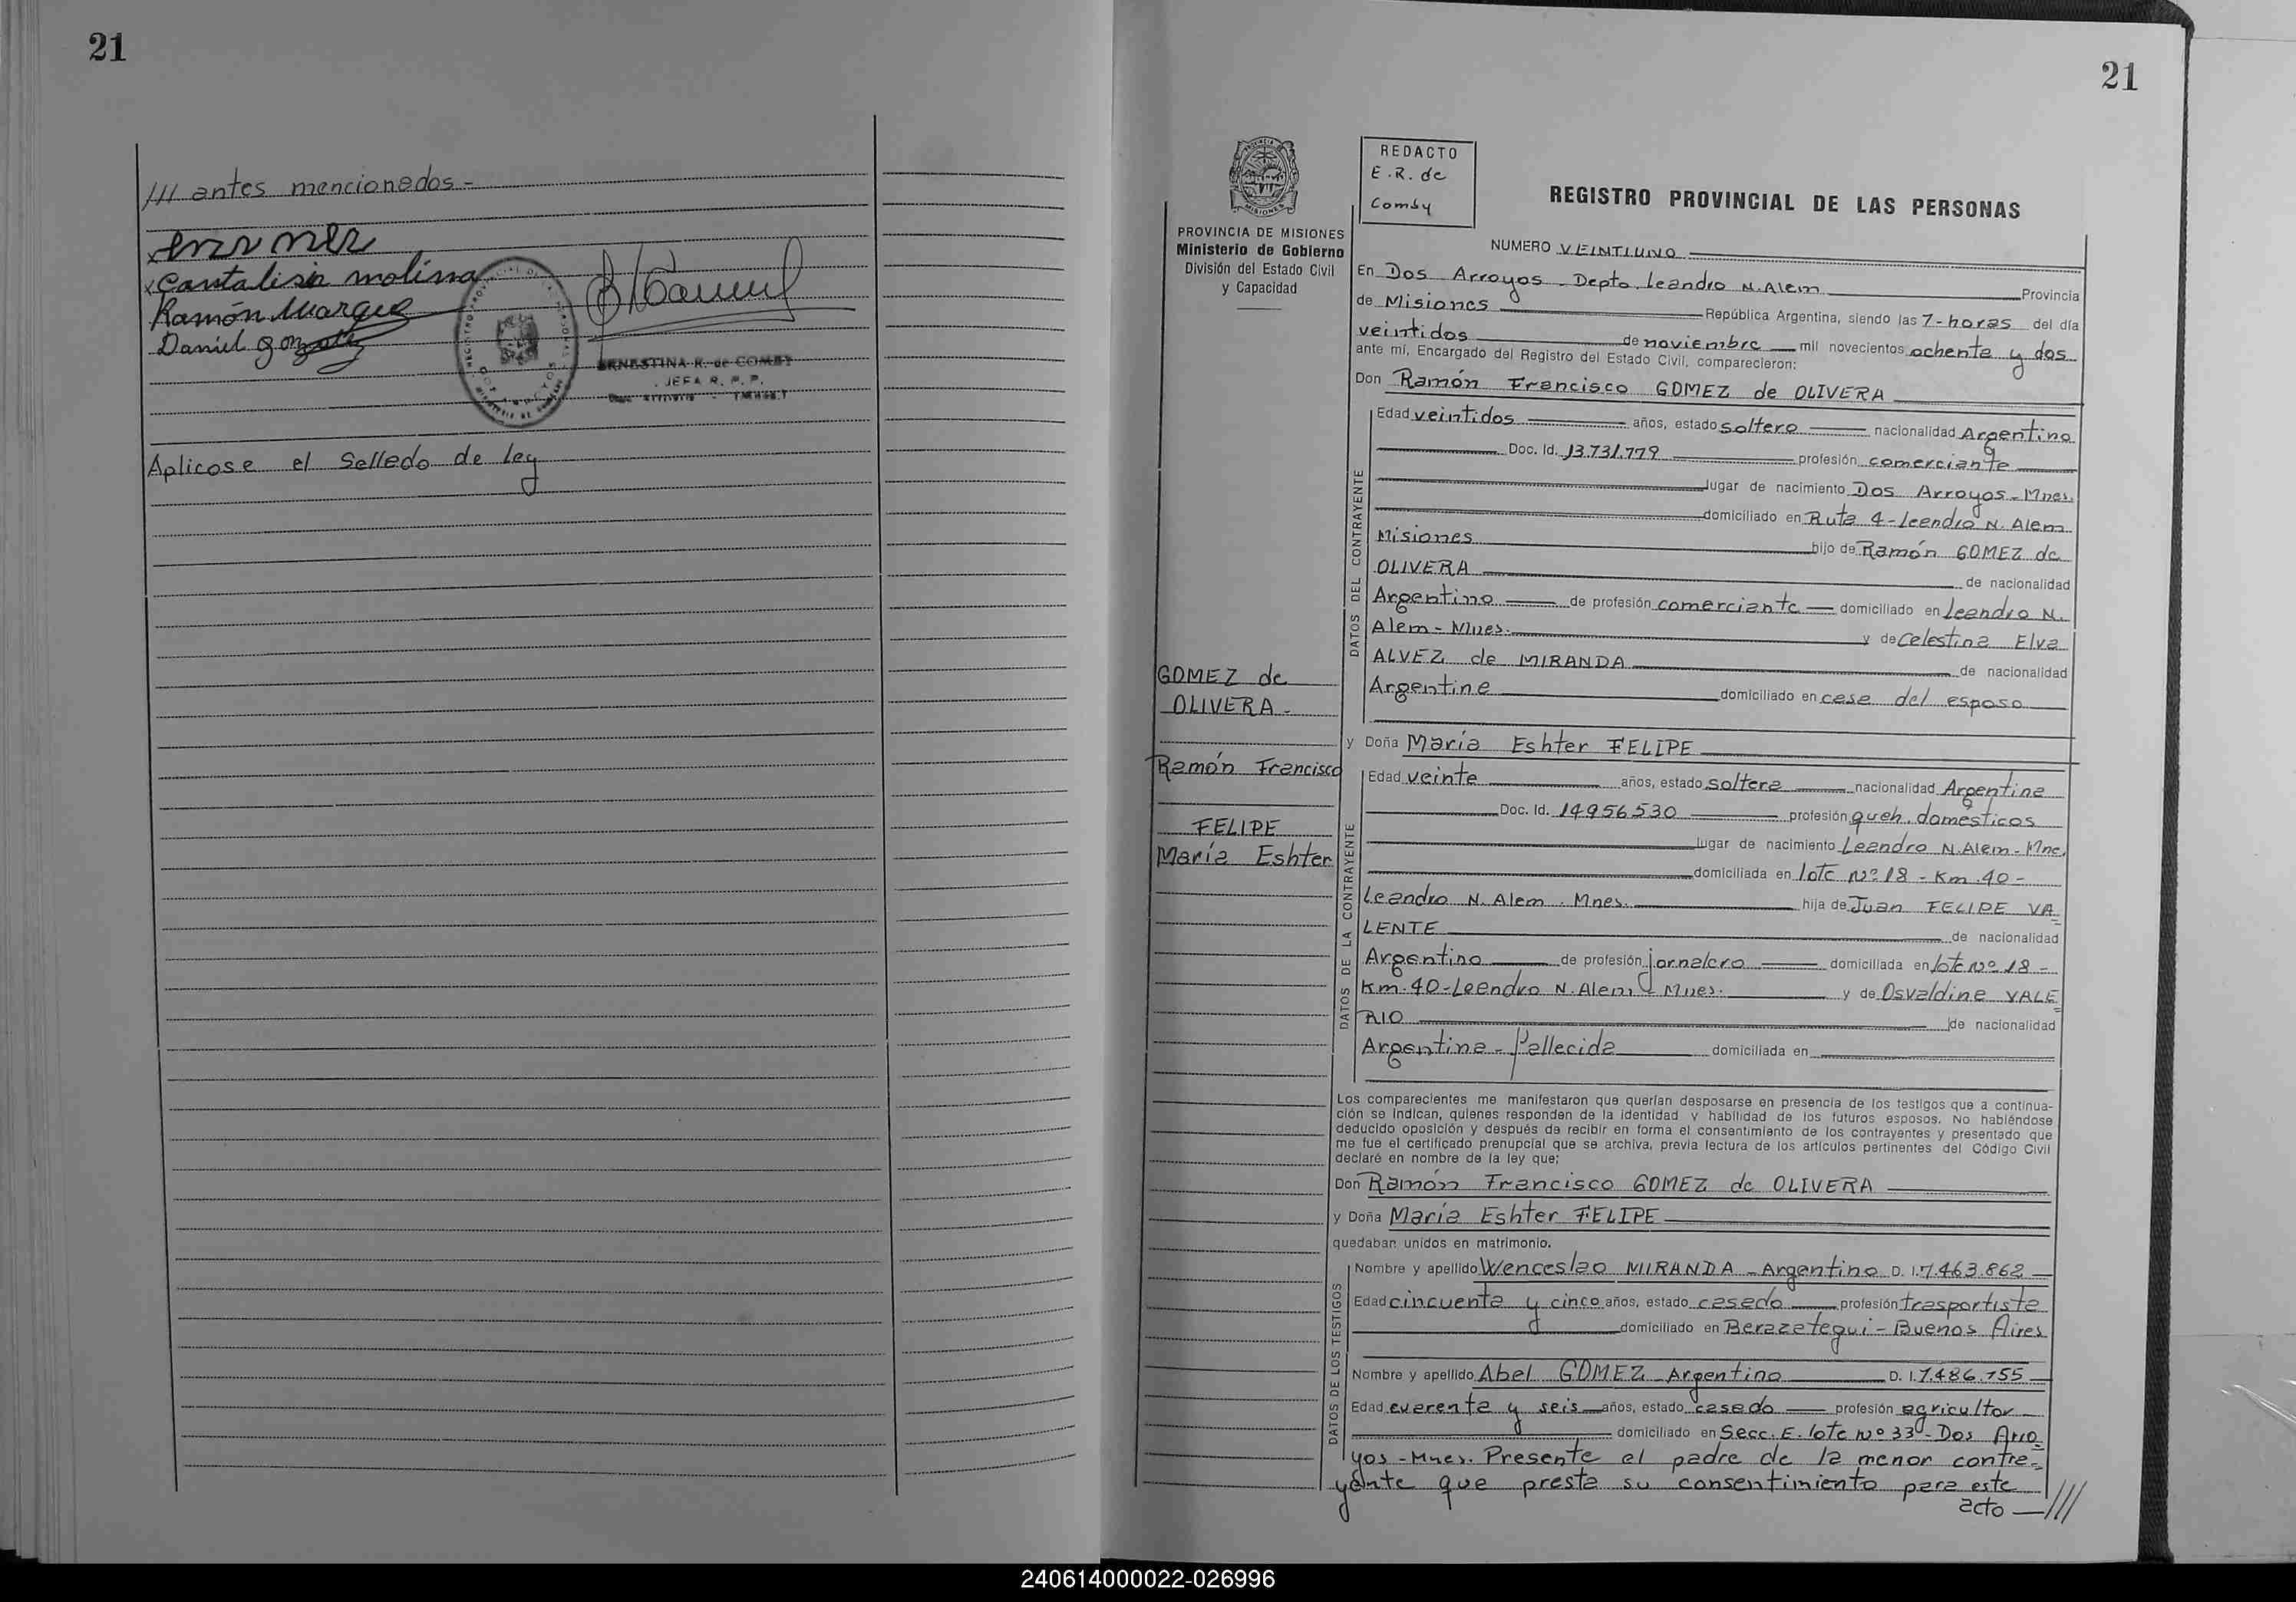 21
/// antes mencionados -
Cantalisia molina
Ramón Marque
Daniel
ERNESTINA R. de COMBY
JEFA R. P. P.
Aplicose el Sellado de ley
21
PROVINCIA DE MISIONES
Ministerio de Gobierno
División del Estado Civil
y Capacidad
REDACTO
E.R. de
Comby
REGISTRO PROVINCIAL DE LAS PERSONAS
NUMERO VEINTIUNO
En Dos Arroyos - Depto. Leandro N. Alem Provincia
de Misiones República Argentina, siendo las 7- horas del día
veintidos de noviembre mil novecientos ochenta y dos
ante mí, Encargado del Registro del Estado Civil, comparecieron:
Don Ramón Francisco GOMEZ de OLIVERA
DATOS DEL CONTRAYENTE
Edad veintidos años, estado soltero nacionalidad Argentino
Doc. Id. 13.731.779 profesión comerciante
lugar de nacimiento Dos Arroyos - Mnes.
domiciliado en Ruta 4 - Leandro N. Alem
Misiones hijo de Ramón GOMEZ de
OLIVERA de nacionalidad
Argentino de profesión comerciante domiciliado en Leandro N.
Alem - Mnes. y de Celestina Elva
ALVEZ de MIRANDA de nacionalidad
Argentina domiciliado en casa del esposo
GOMEZ de
OLIVERA -
Ramón Francisco
FELIPE
María Eshter
y Doña María Eshter FELIPE
DATOS DE LA CONTRAYENTE
Edad veinte años, estado soltera nacionalidad Argentina
Doc. Id. 14956530 profesión queh. domesticos
lugar de nacimiento Leandro N. Alem - Mne.
domiciliada en lote Nº 18 - Km. 40 -
Leandro N. Alem. Mnes. hija de Juan FELIPE VA=
LENTE de nacionalidad
Argentino de profesión jornalero domiciliada en lote Nº 18 -
Km. 40 - Leandro N. Alem Mnes. y de Osvaldina VALE=
RIO de nacionalidad
Argentina - fallecida domiciliada en
Los comparecientes me manifestaron que querían desposarse en presencia de los testigos que a continua-
ción se indican, quienes responden de la identidad y habilidad de los futuros esposos. No habiéndose
deducido oposición y después de recibir en forma el consentimiento de los contrayentes y presentado que
me fue el certificado prenupcial que se archiva, previa lectura de los artículos pertinentes del Código Civil
declaré en nombre de la ley que;
Don Ramón Francisco GOMEZ de OLIVERA
y Doña María Eshter FELIPE
quedaban unidos en matrimonio.
DATOS DE LOS TESTIGOS
Nombre y apellido Wenceslao MIRANDA - Argentino D. I. 7.463.862
Edad cincuenta y cinco años, estado casado profesión trasportista
domiciliado en Berazategui - Buenos Aires
Nombre y apellido Abel GOMEZ - Argentino D. I. 7.486.755
Edad cuarenta y seis años, estado casado profesión agricultor
domiciliado en Secc. E. lote Nº 33 - Dos Arro=
yos - Mnes. Presente el padre de la menor contra=
yente que presta su consentimiento para este
acto — ///
240614000022-026996